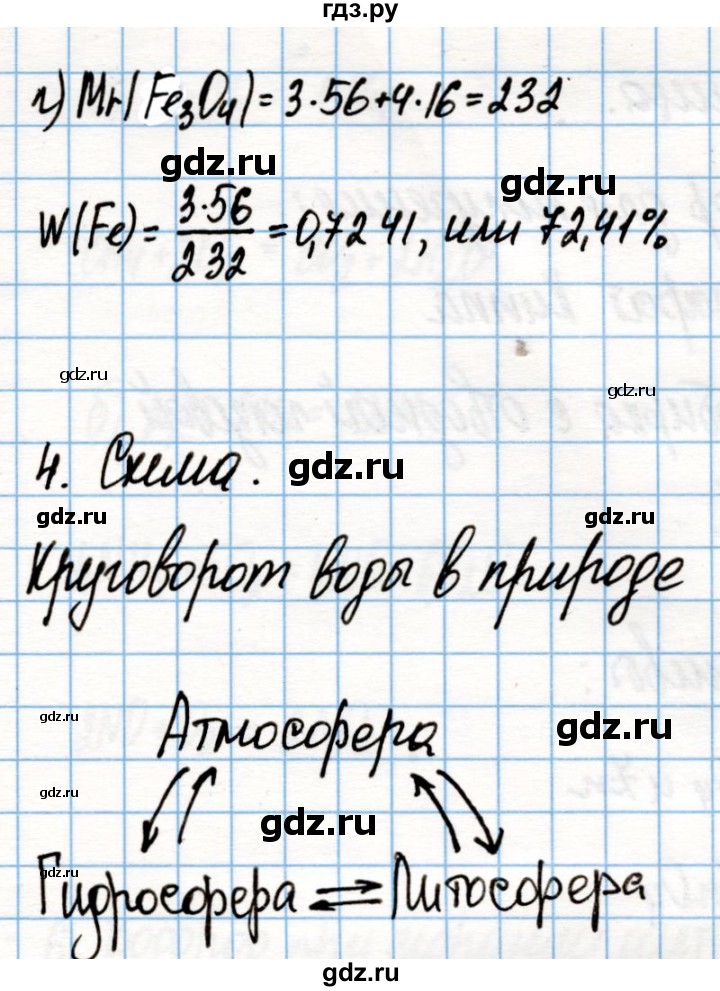 гдз.ру
г) Mr(Fe₃O₄) = 3·56+4·16 = 232
gdz.ru
gdz.ru
W(Fe) = 3·56/232 = 0,7241, или 72,41%
gdz.ru
gdz.ru
4. Схема. gdz.ru
gdz.ru gdz.ru
Круговорот воды в природе
gdz.ru
Атмосфера gdz.ru
gdz.ru
gdz.ru
gdz.ru
Гидросфера ⇌ Литосфера
gdz.ru